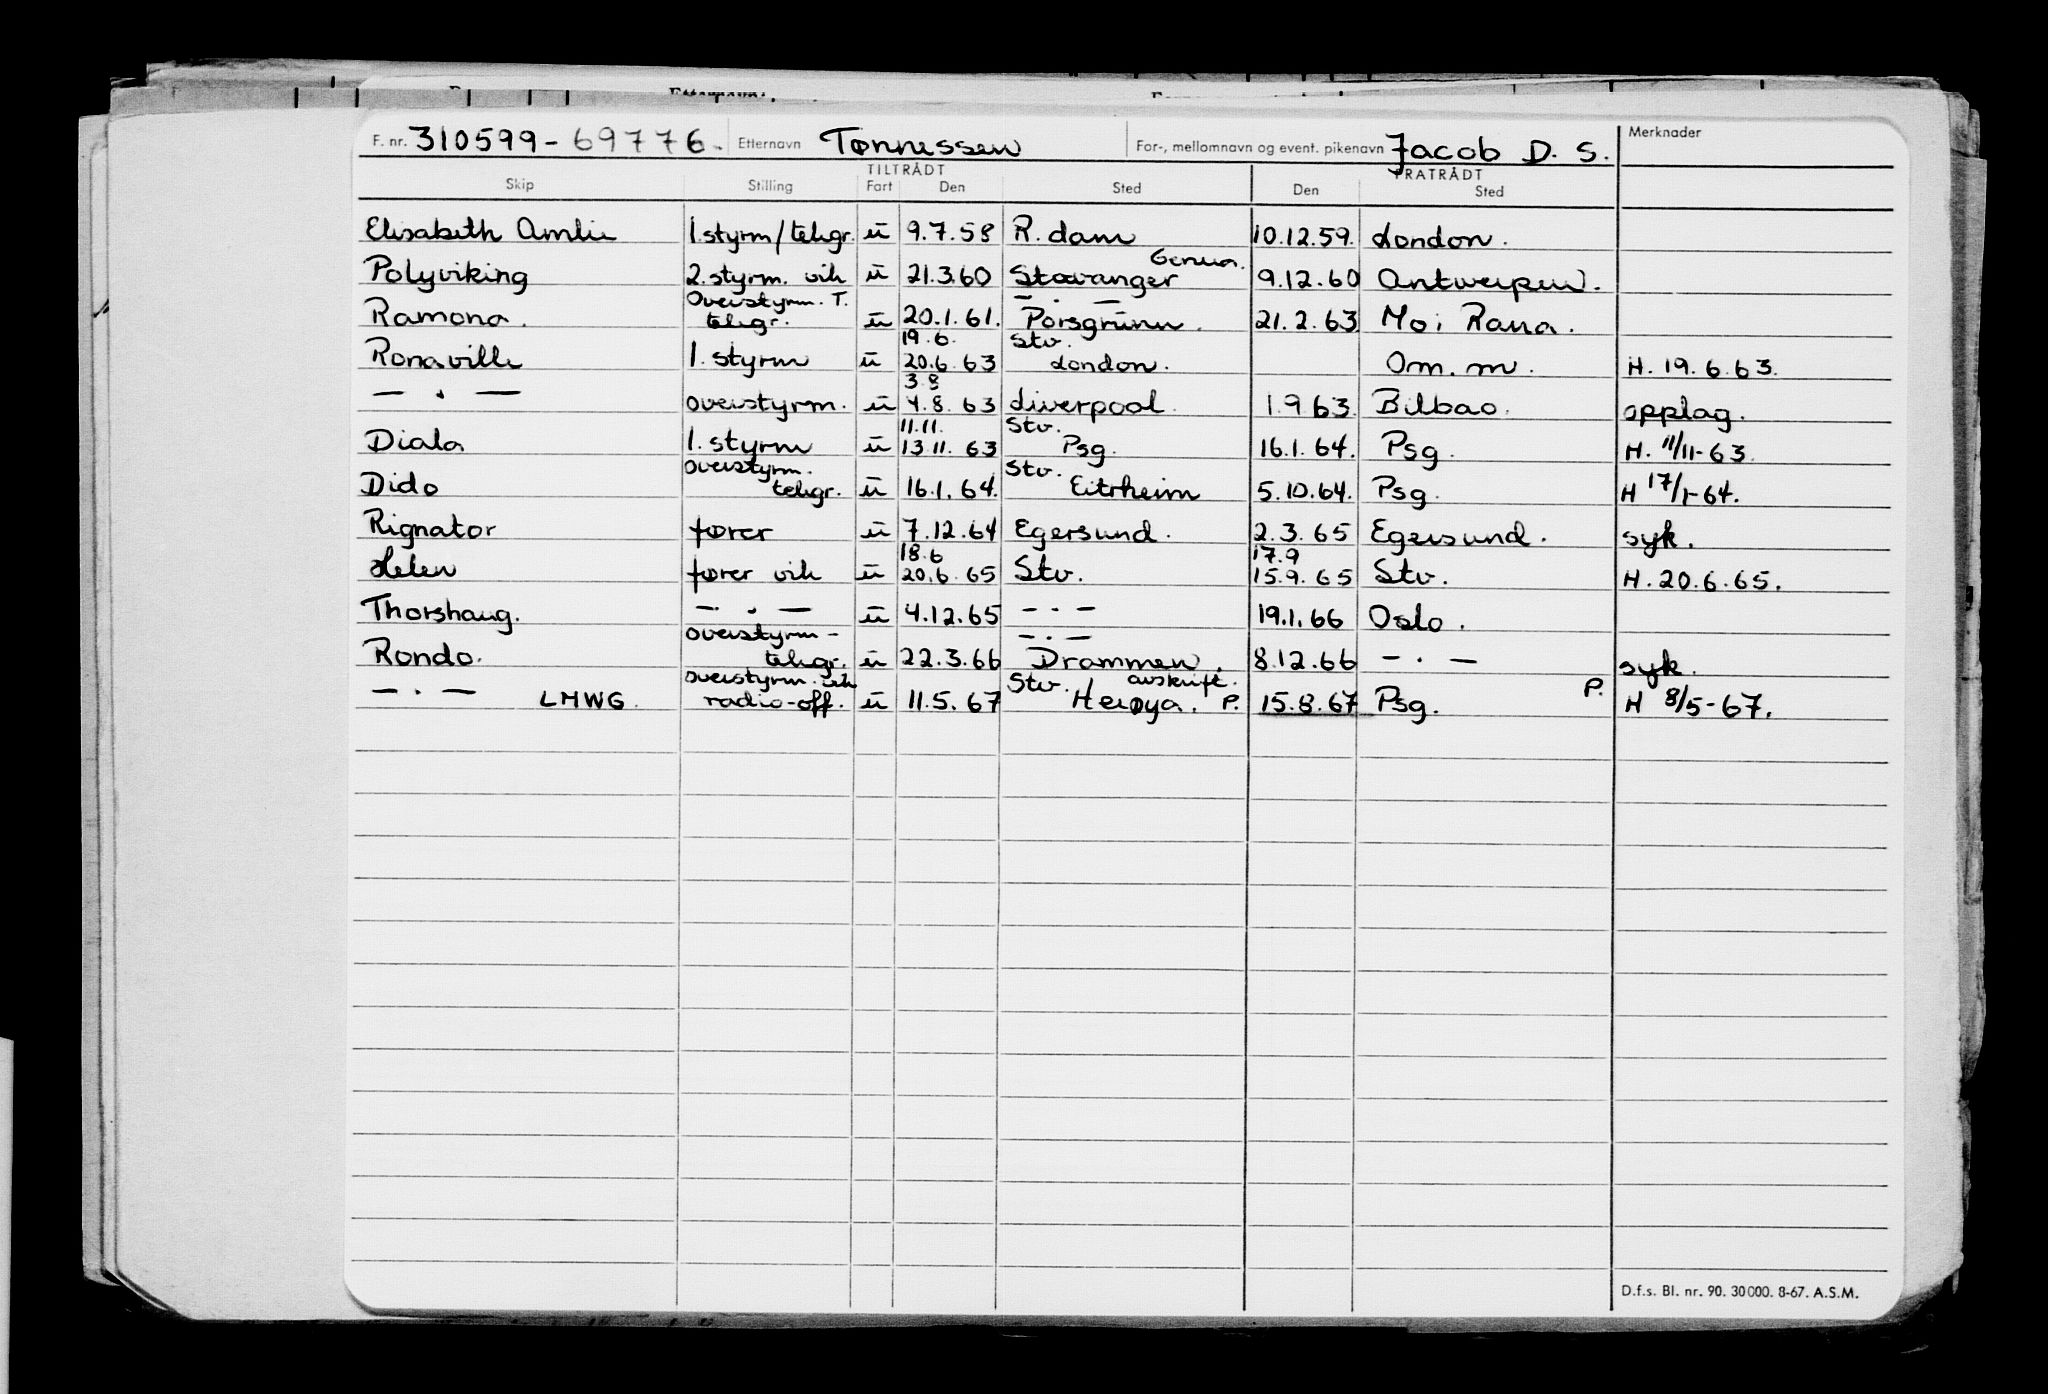 F. nr. 310599-69776. Etternavn Tønnessen For-, mellomnavn og event. pikenavn Jacob D. S. Merknader
TILTRÅDT FRATRÅDT
Skip Stilling Fart Den Sted Den Sted
Elisabeth Amlie 1.styrm/telegr. u 9.7.58 R.dam 10.12.59. London.
Genua.
Polyviking 2.styrm. vik u 21.3.60 Stavanger 9.12.60 Antwerpen.
Overstyrm. T. — . —
Ramona. telegr. u 20.1.61. Porsgrunn. 21.2.63 Mo i Rana.
19.6. Stv.
Ronaville 1. styrm u 20.6.63 London. Om. m. H. 19.6.63.
3.8
— . — overstyrm. u 4.8.63 Liverpool. 1.9.63. Bilbao. opplag.
11.11. Stv.
Diala 1. styrm u 13.11.63 Psg. 16.1.64. Psg. H. 11/11-63.
overstyrm. Stv.
Dido telegr. u 16.1.64. Eitrheim 5.10.64. Psg. H 17/1-64.
Rignator fører u 7.12.64 Egersund. 2.3.65 Egersund. syk.
18.6 17.9
Helen fører vik u 20.6.65 Stv. 15.9.65 Stv. H. 20.6.65.
Thorshaug. — . — u 4.12.65 — . — 19.1.66 Oslo.
overstyrm - — . —
Rondo. telegr. u 22.3.66 Drammen. 8.12.66 — . — syk.
overstyrm. vik Stv. avskrift. P.
— . — LMWG. radio-off. u 11.5.67 Herøya. P. 15.8.67 Psg. H 8/5-67.
D.f.s. Bl. nr. 90. 30000. 8-67. A.S.M.